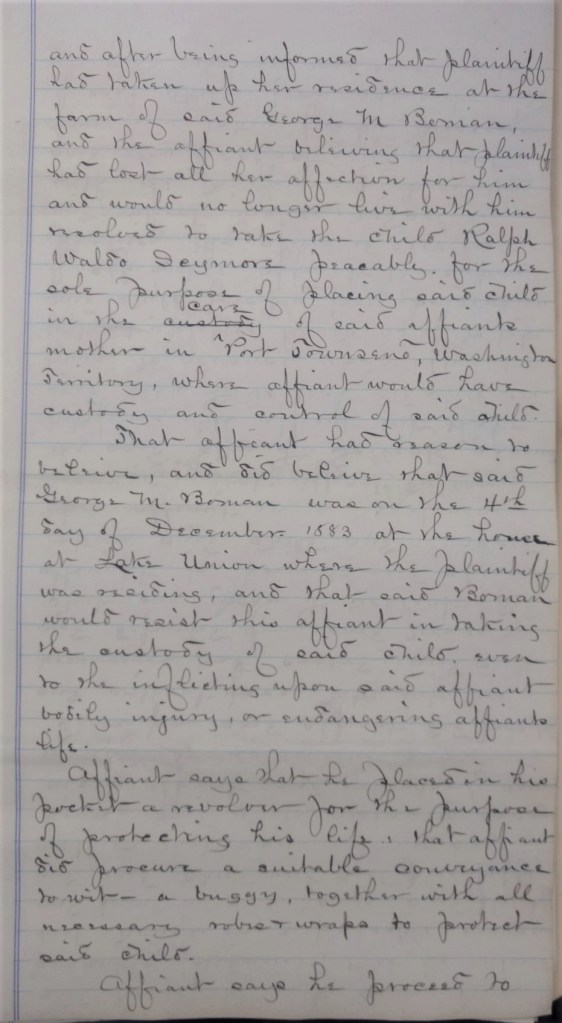 and after being informed that plaintiff
had taken up her residence at the
farm of said George M Boman,
and the affiant beliwing that plaintiff
had lost all her affection for him
and would no longer live with him
resolved to take the child Ralph
Waldo Seymore peacably. for the
sole purpose of placing said child
care
in the custody of said affiants
mother in Port Townsend, Washington
Territory, where affiant would have
custody and control of said child.
That afficant had reason to
beleive, and did beleive that said
George M. Boman was on the 4th
day of December 1883 at the house
at Lake Union where the plaintiff
was residing, and that said Boman
would resist this affiant in taking
the custody of said child. even
to the inflicting upon said affiant
bodily injury, or endangering affiants
life.
Affiant says that he placed in his
pocket a revolver for the purpose
of protecting his life, that affiant
did procure a suitable conveyance
to wit - a buggy, together with all
necessary robes & wraps to protect
said child.
Affiant says he proceed to